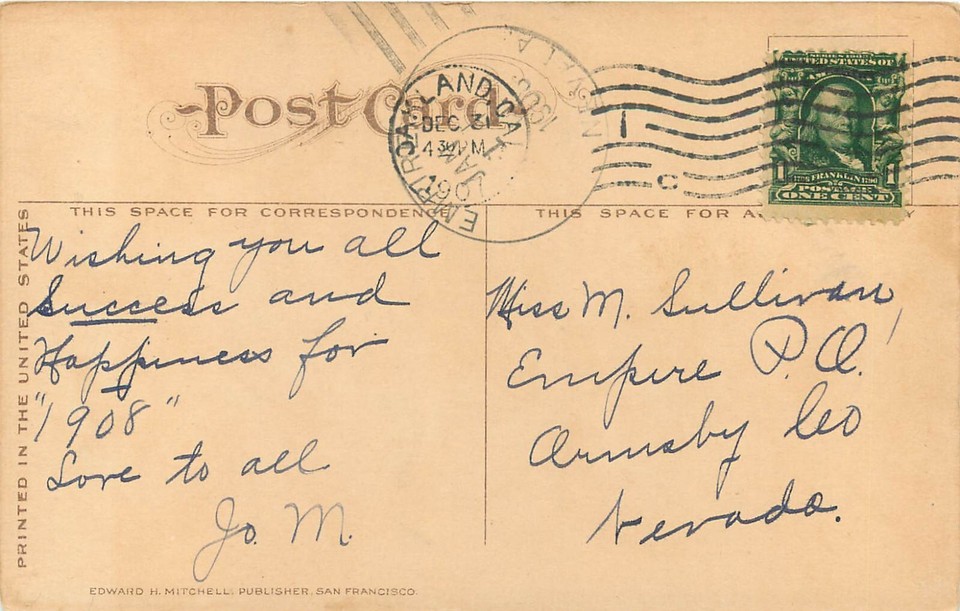 Post Card
OAKLAND, CAL.
DEC 31
4 30 PM
EMPIRE
JAN
1908
SERIES 1902
UNITED STATES OF
AMERICA
1 1
1706 FRANKLIN 1790
POSTAGE
ONE CENT
THIS SPACE FOR CORRESPONDENCE
THIS SPACE FOR A
Y
PRINTED IN THE UNITED STATES
Wishing you all
Success and
Happiness for
"1908"
Love to all
Jo. M.
Miss M. Sullivan,
Empire P.O.
Ormsby Co
Nevada.
EDWARD H. MITCHELL, PUBLISHER, SAN FRANCISCO.